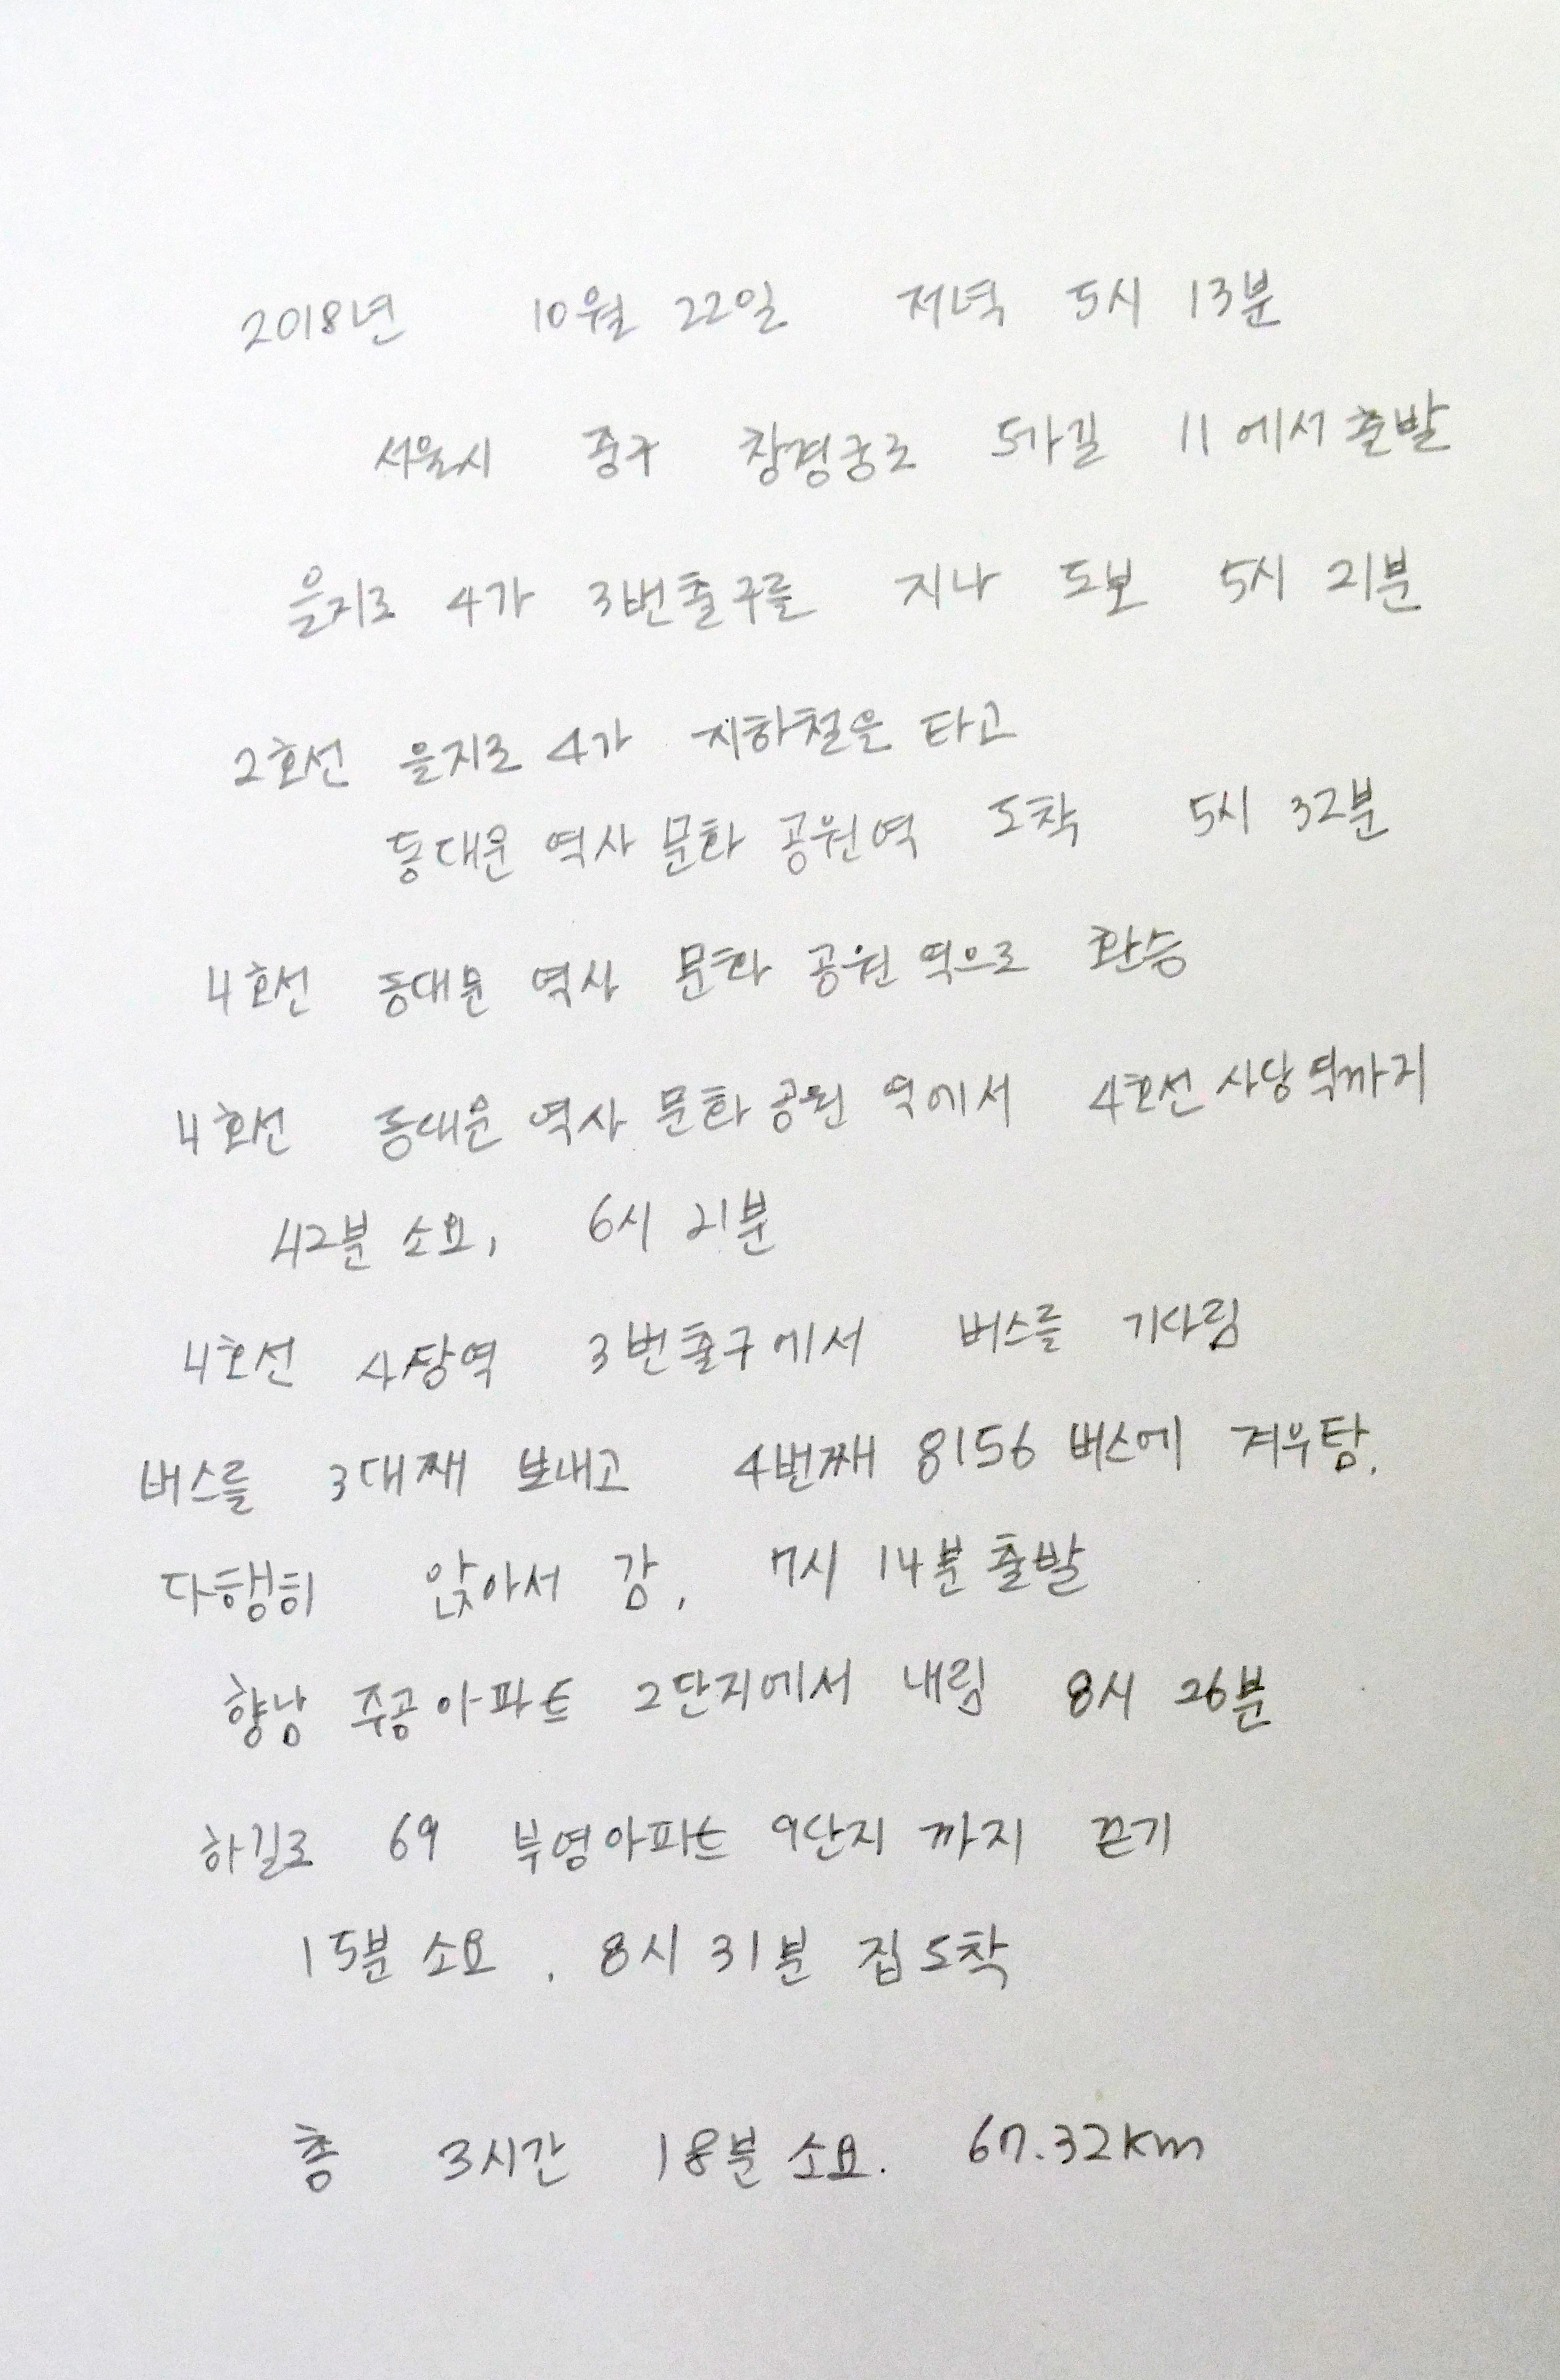 2018년 10월 22일 저녁 5시 13분
서울시 중구 창경궁로 5가길 11 에서 출발
을지로 4가 3번출구를 지나 도보 5시 21분
2호선 을지로 4가 지하철을 타고
동대문 역사 문화 공원역 도착 5시 32분
4호선 동대문 역사 문화 공원 역으로 환승
4호선 동대문 역사 문화 공원 역에서 4호선 사당역까지
42분 소요, 6시 21분
4호선 사당역 3번출구에서 버스를 기다림
버스를 3대째 보내고 4번째 8156 버스에 겨우탐.
다행히 앉아서 감, 7시 14분 출발
향남 주공아파트 2단지에서 내림 8시 26분
하길로 69 부영아파트 9단지 까지 걷기
15분 소요. 8시 31분 집도착
총 3시간 18분 소요. 67.32km